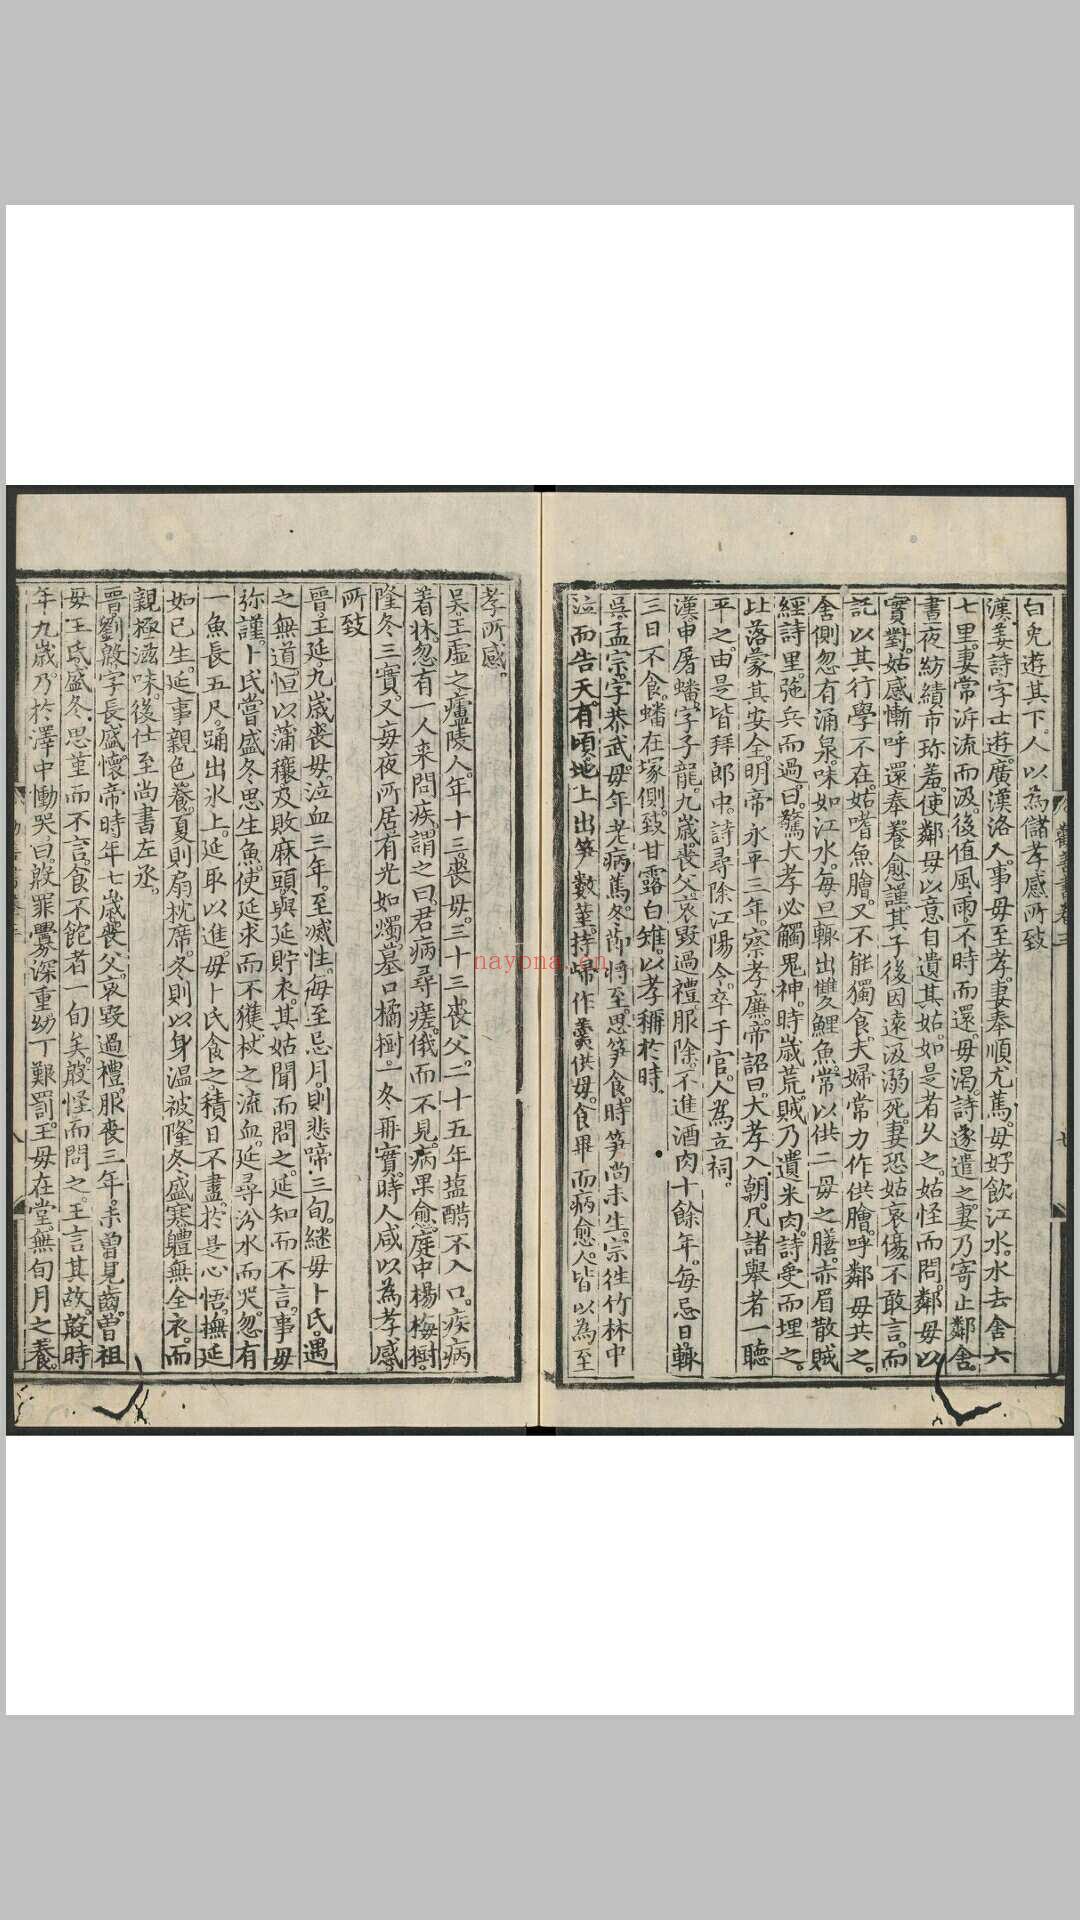 白兎遊其下。人以為儲孝感所致
漢姜詩字士遊。廣漢洛人。事母至孝。妻奉順尤篤。母好飲江水。水去舍六
七里。妻常泝流而汲。後值風雨。不時而還。母渴。詩遂遣之。妻乃寄止鄰舍。
晝夜紡績。市珎羞。使鄰母以意自遺其姑。如是者久之。姑怪而問。鄰母以
實對。姑感慚呼還。奉養愈謹。其子後因遠汲溺死。妻恐姑哀傷。不敢言。而
託以其行學不在。姑嗜魚膾。又不能獨食。夫婦常力作供膾。呼鄰母共之。
舍側忽有涌泉。味如江水。每旦輙出雙鯉魚。常以供二母之膳。赤眉散賊
經詩里。弛兵而過。曰。驚大孝必觸鬼神。時歲荒。賊乃遺米肉。詩受而埋之。
比落蒙其安全。明帝永平三年。察孝廉。帝詔曰。大孝入朝。凡諸舉者一聽
平之。由是皆拜郎中。詩尋除江陽令。卒于官。人為立祠。
漢申屠蟠。字子龍。九歲喪父。哀毀過禮。服除。不進酒肉十餘年。每忌日輙
三日不食。蟠在塚側。致甘露白雉。以孝稱於時。
吳孟宗。字恭武。母年老病篤。冬節將至。思笋食。時笋尚未生。宗徃竹林中
泣而告天。有頃。地上出笋數莖。持歸作羹供母。食畢而病愈。人皆以為至
孝所感。
吳王虛之。廬陵人。年十三喪母。三十三喪父。二十五年塩醋不入口。疾病
着牀。忽有一人来問疾。謂之曰。君病尋瘥。俄而不見。病果愈。庭中楊梅樹。
隆冬三實。又毎夜所居有光如燭。墓口橘樹。一冬再實。時人咸以為孝感
所致
晉王延。九歲喪母。泣血三年。至滅性。每至忌月。則悲啼三旬。継母卜氏。遇
之無道。恒以蒲穰及敗麻頭與延貯衣。其姑聞而問之。延知而不言。事母
弥謹。卜氏嘗盛冬思生魚。使延求而不獲。杖之流血。延尋汾水而哭。忽有
一魚長五尺。踊出氷上。延取以進。母卜氏食之。積日不盡。於是心悟。撫延
如已生。延事親色養。夏則扇枕席。冬則以身温被。隆冬盛寒。軆無全衣。而
親極滋味。後仕至尚書左丞。
晉劉殷。字長盛。懷帝時年七歲喪父。哀毀過禮。服喪三年。未曾見齒。曾祖
母王氏。盛冬思堇而不言。食不飽者一旬矣。殷怪而問之。王言其故。殷時
年九歲。乃於澤中慟哭。曰。殷罪舋深重。幼丁艱罰。王母在堂。無旬月之養。
nayona.cn